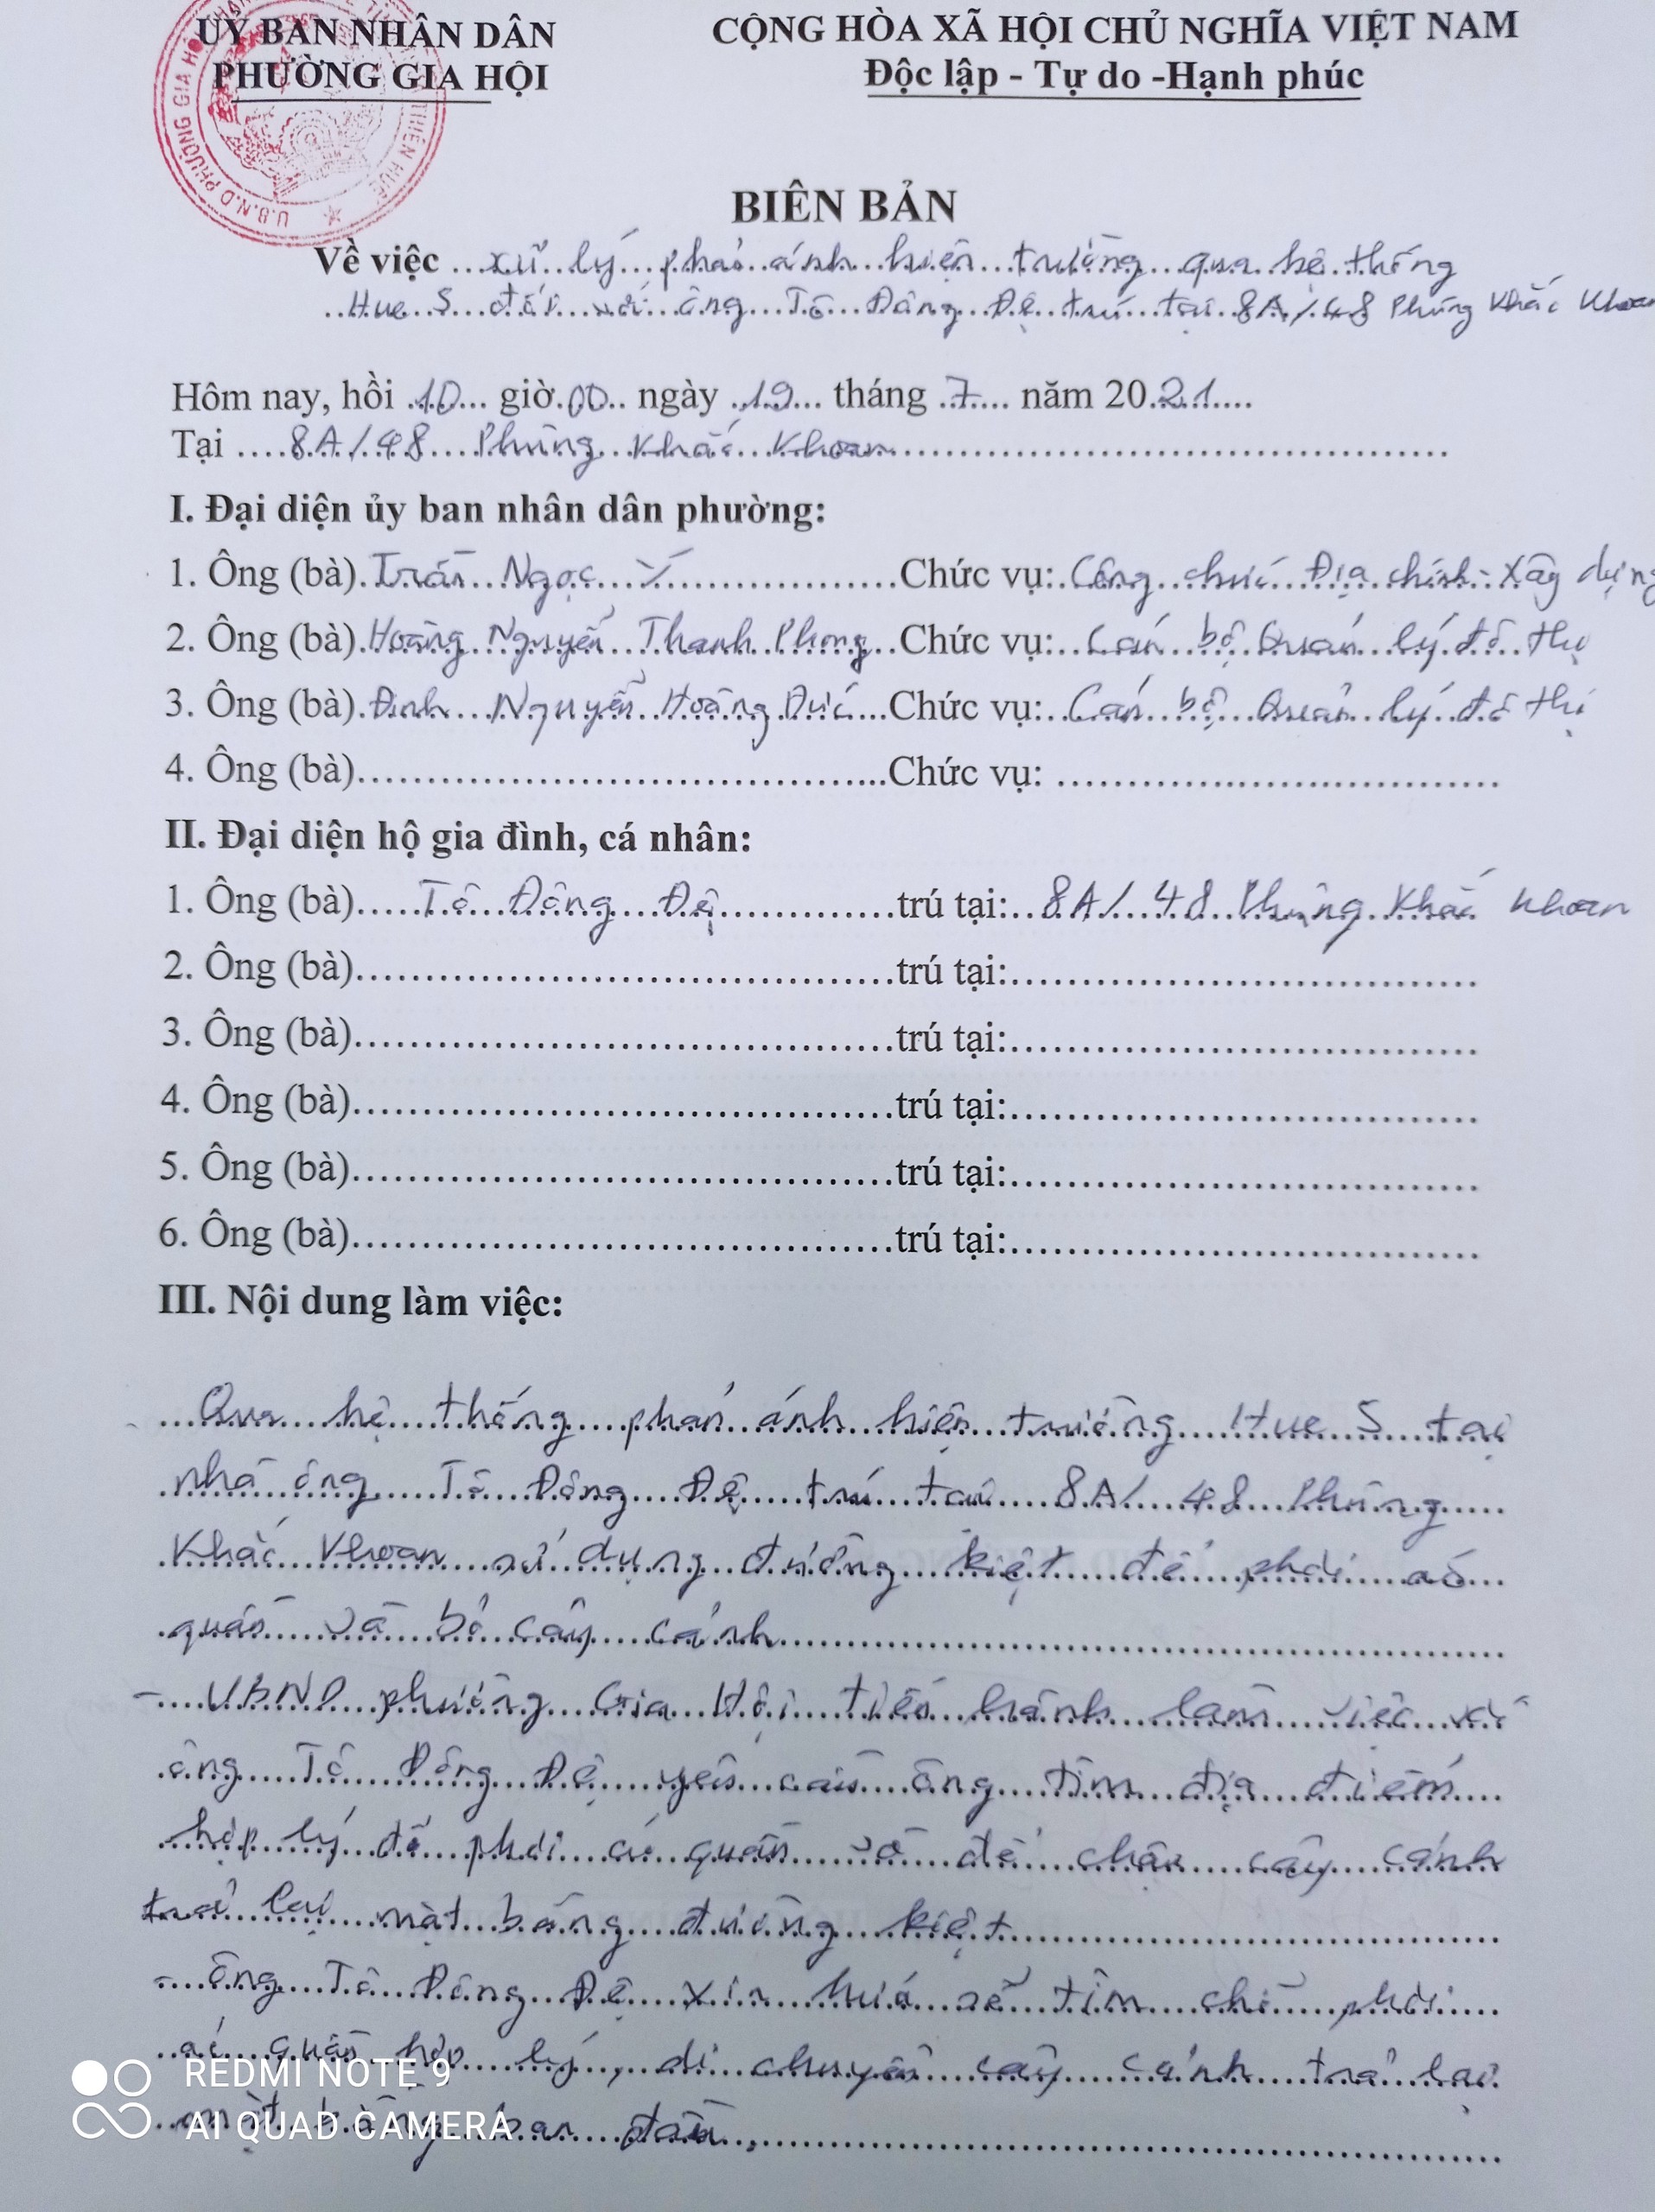 ỦY BAN NHÂN DÂN
PHƯỜNG GIA HỘI
CỘNG HÒA XÃ HỘI CHỦ NGHĨA VIỆT NAM
Độc lập - Tự do -Hạnh phúc
U.B.N.D PHƯỜNG GIA HỘI
BIÊN BẢN
Về việc xử lý phản ánh hiện trường qua hệ thống
Hue S đối với ông Tô Đông Đệ trú tại 8A/48 Phùng Khắc Khoan
Hôm nay, hồi 10 giờ 00 ngày 19 tháng 7 năm 2021
Tại 8A/48 Phùng Khắc Khoan
I. Đại diện ủy ban nhân dân phường:
1. Ông (bà) Trần Ngọc Ý Chức vụ: Công chức Địa chính - Xây dựng
2. Ông (bà) Hoàng Nguyễn Thanh Phong Chức vụ: Cán bộ Quản lý đô thị
3. Ông (bà) Đinh Nguyễn Hoàng Đức Chức vụ: Cán bộ Quản lý đô thị
4. Ông (bà) Chức vụ:
II. Đại diện hộ gia đình, cá nhân:
1. Ông (bà) Tô Đông Đệ trú tại: 8A/48 Phùng Khắc Khoan
2. Ông (bà) trú tại:
3. Ông (bà) trú tại:
4. Ông (bà) trú tại:
5. Ông (bà) trú tại:
6. Ông (bà) trú tại:
III. Nội dung làm việc:
Qua hệ thống phản ánh hiện trường Hue S tại
nhà ông Tô Đông Đệ trú tại 8A/48 Phùng
Khắc Khoan sử dụng đường kiệt để phơi áo
quần và bỏ cây cảnh
- UBND phường Gia Hội tiến hành làm việc với
ông Tô Đông Đệ yêu cầu ông tìm địa điểm
hợp lý để phơi áo quần và để chậu cây cảnh
trả lại mặt bằng đường kiệt
- ông Tô Đông Đệ xin hứa sẽ tìm chỗ phơi
áo quần hợp lý, di chuyển cây cảnh trả lại
mặt bằng ban đầu.
REDMI NOTE 9
AI QUAD CAMERA